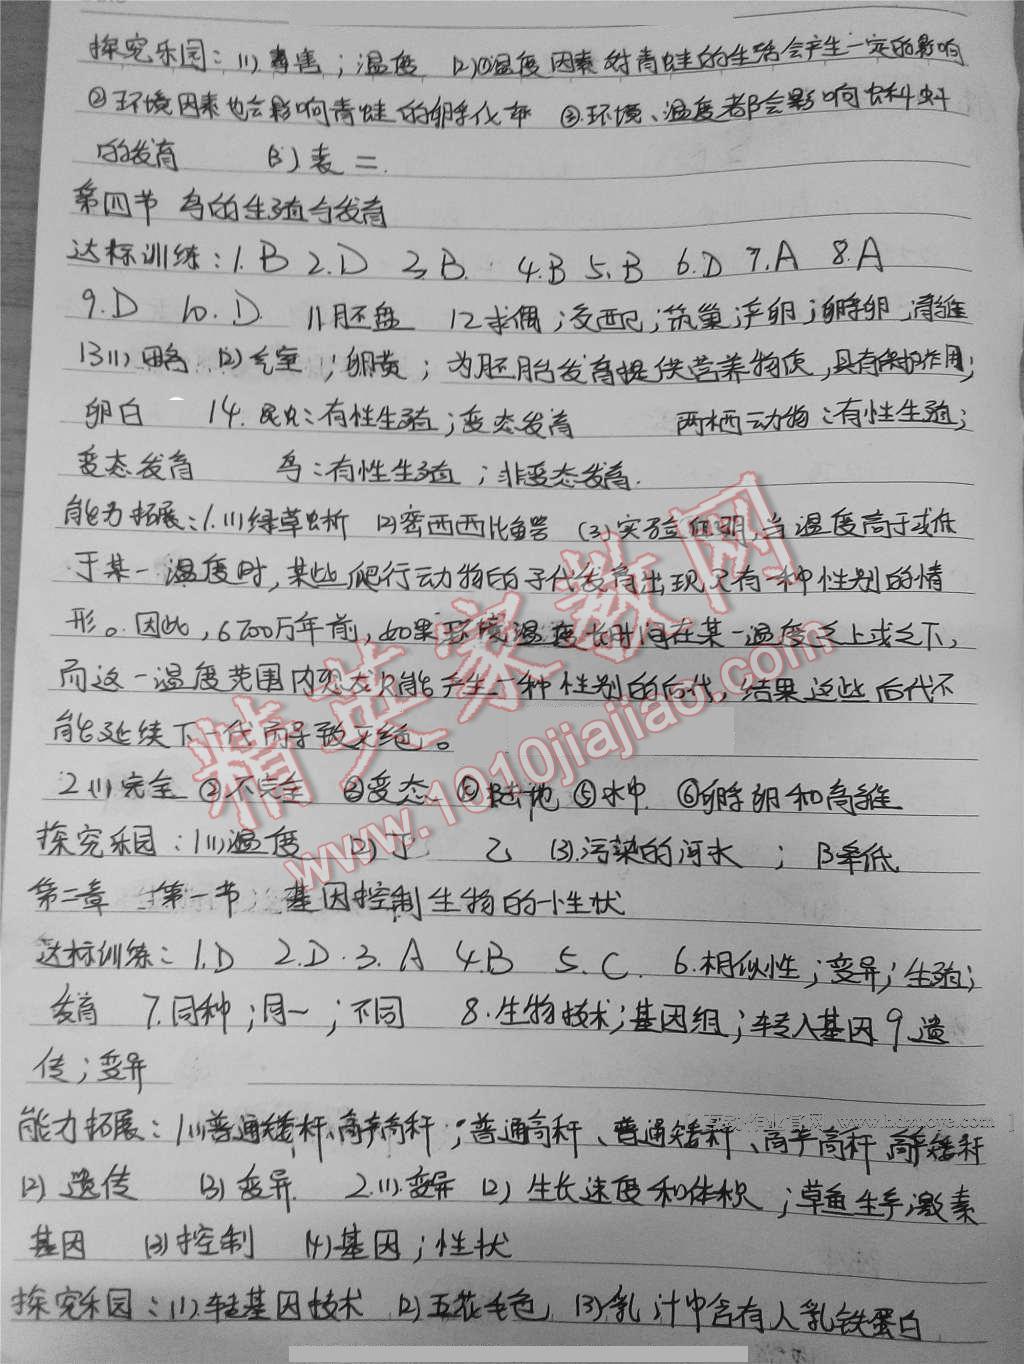 探究乐园：(1)毒害；温度 (2)①温度因素对青蛙的生活会产生一定的影响
②环境因素也会影响青蛙的孵化率 ③环境、温度都会影响女科蚪
的发育 (3)表二.
第四节 鸟的生殖与发育
达标训练：1.B 2.D 3.B. 4.B 5.B 6.D 7.A 8.A
9.D 10.D 11胚盘 12求偶；交配；筑巢；产卵；孵卵；育雏
13(1)略 (2)气室；卵黄；为胚胎发育提供营养物质，具有保护作用；
卵白 14.昆虫：有性生殖；变态发育 两栖动物：有性生殖；
变态发育 鸟：有性生殖；非变态发育.
能力拓展：1.(1)绿草蜥 (2)密西西比鳄 (3)实验证明，当温度高于或低
于某一温度时，某些爬行动物的子代发育出现只有一种性别的情
形。因此，6700万年前，如果环境温度长时间在某一温度之上或之下，
而这一温度范围内恐龙只能产生一种性别的后代，结果这些后代不
能延续下一代而导致灭绝。
2(1)完全 ②不完全 ③变态 ④陆地 ⑤水中 ⑥孵卵和育雏
探究乐园：1(1)温度 (2)丁 乙 (3)污染的河水；降低
第二章 第一节 基因控制生物的性状
达标训练：1.D 2.D.3.A 4.B 5.C. 6.相似性；变异；生殖；
发育 7.同种；同一；不同 8.生物技术；基因组；转入基因 9.遗
传；变异
能力拓展：1(1)普通矮秆、高产高秆；普通高秆、普通矮秆、高产高秆、高产矮秆
(2)遗传 (3)变异. 2.(1).变异 (2)生长速度和体积；草鱼生长激素
基因 (3)控制 (4)基因；性状
探究乐园：(1)转基因技术 (2)五花毛色，(3)乳汁中含有人乳铁蛋白
精英家教网
www.1010jiajiao.com